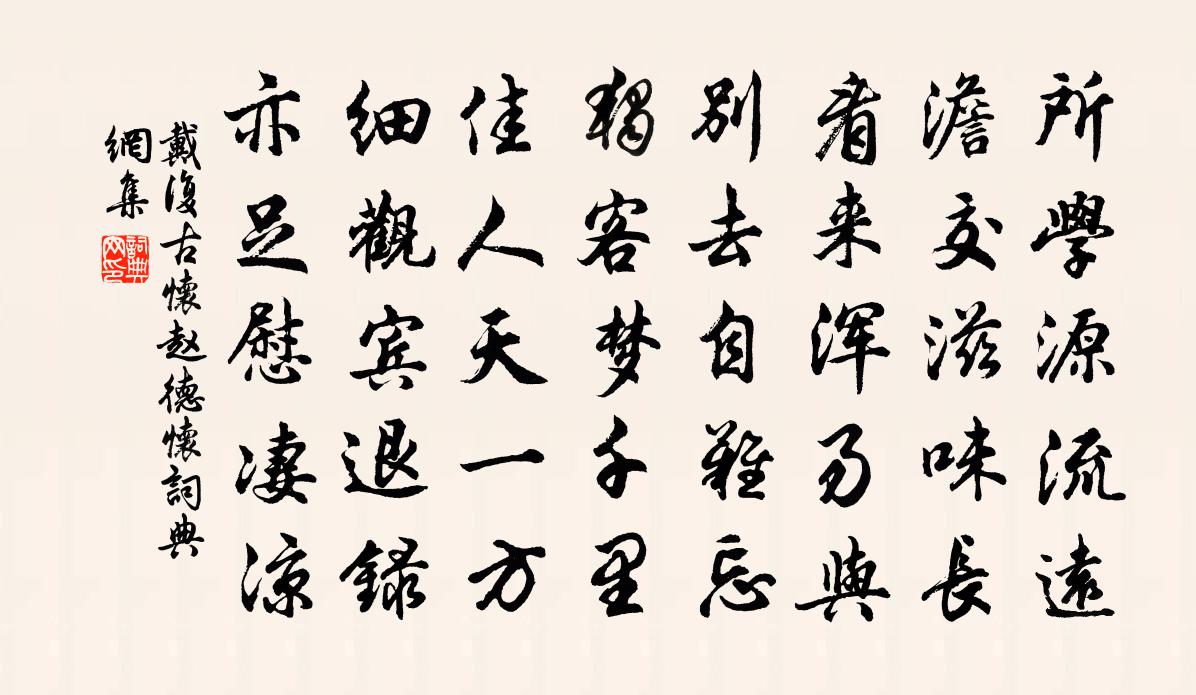 所學源流遠
澹交滋味長
看来浑易與
別去自難忘
獨客梦千里
佳人天一方
細觀宾退録
亦足慰淒涼
戴復古懷赵德懷詞典
網集
詞典网印